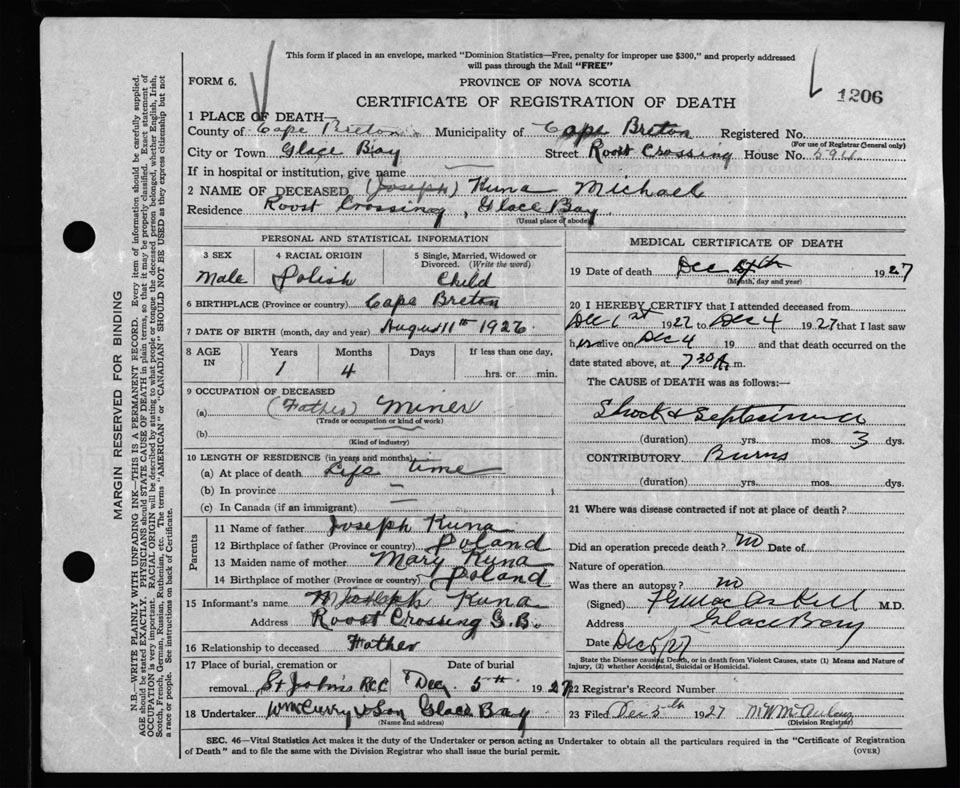 This form if placed in an envelope, marked "Dominion Statistics—Free, penalty for improper use $300," and properly addressed
will pass through the Mail "FREE"
FORM 6.
PROVINCE OF NOVA SCOTIA
1206
CERTIFICATE OF REGISTRATION OF DEATH
1 PLACE OF DEATH—
County of Cape Breton Municipality of Cape Breton Registered No.
(For use of Registrar General only)
City or Town Glace Bay Street Roost Crossing House No.
If in hospital or institution, give name
2 NAME OF DECEASED (Joseph) Kuna Michael
Residence Roost Crossing, Glace Bay
(Usual place of abode)
PERSONAL AND STATISTICAL INFORMATION
3 SEX 4 RACIAL ORIGIN 5 Single, Married, Widowed or Divorced. (Write the word)
Male Polish Child
6 BIRTHPLACE (Province or country) Cape Breton
7 DATE OF BIRTH (month, day and year) August 11th 1926
8 AGE IN Years Months Days If less than one day,
1 4 hrs. or min.
9 OCCUPATION OF DECEASED
(a) (Father) Miner
(Trade or occupation or kind of work)
(b)
(Kind of industry)
10 LENGTH OF RESIDENCE (in years and months)
(a) At place of death Life time
(b) In province
(c) In Canada (if an immigrant)
Parents
11 Name of father Joseph Kuna
12 Birthplace of father (Province or country) Poland
13 Maiden name of mother Mary Kuna
14 Birthplace of mother (Province or country) Poland
15 Informant's name Joseph Kuna
Address Roost Crossing G.B.
16 Relationship to deceased Father
17 Place of burial, cremation or Date of burial
removal St John's RCC Dec 5th 1927
18 Undertaker Wm Curry & Son Glace Bay
(Name and address)
MEDICAL CERTIFICATE OF DEATH
19 Date of death Dec 4th 1927
(Month, day and year)
20 I HEREBY CERTIFY that I attended deceased from
Dec 1st 1927 to Dec 4 1927 that I last saw
h alive on Dec 4 19 and that death occurred on the
date stated above, at 7 30 A m.
The CAUSE of DEATH was as follows:—
Shock & Septicimia
(duration) yrs. mos. 3 dys.
CONTRIBUTORY Burns
(duration) yrs. mos. dys.
21 Where was disease contracted if not at place of death?
Did an operation precede death? no Date of
Nature of operation
Was there an autopsy? no
(Signed) M.D.
Address Glace Bay
Date Dec 5/27
State the Disease causing Death, or in death from Violent Causes, state (1) Means and Nature of
Injury, (2) whether Accidental, Suicidal or Homicidal.
22 Registrar's Record Number
23 Filed Dec 5th 1927
(Division Registrar)
SEC. 46—Vital Statistics Act makes it the duty of the Undertaker or person acting as Undertaker to obtain all the particulars required in the "Certificate of Registration
of Death" and to file the same with the Division Registrar who shall issue the burial permit.
(OVER)
MARGIN RESERVED FOR BINDING
N.B.—WRITE PLAINLY WITH UNFADING INK—THIS IS A PERMANENT RECORD. Every item of information should be carefully supplied.
AGE should be stated EXACTLY. PHYSICIANS should STATE CAUSE OF DEATH in plain terms, so that it may be properly classified. Exact statement of
OCCUPATION is very important. RACIAL ORIGIN will be described by stating to what people or tongue the deceased person belonged, whether English, Irish,
Scotch, French, German, Russian, Ruthenian, etc. The terms "AMERICAN" or "CANADIAN" SHOULD NOT BE USED as they express citizenship but not
a race or people. See instructions on back of Certificate.